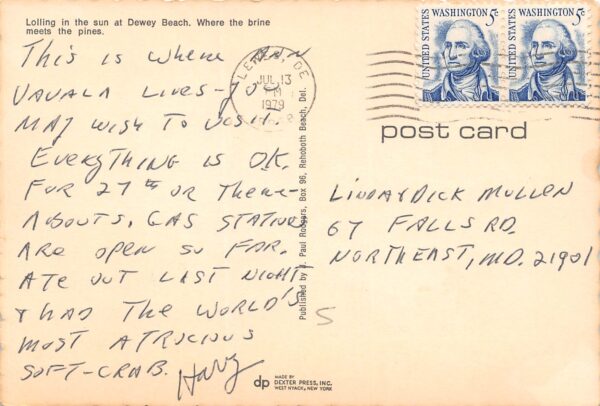 Lolling in the sun at Dewey Beach. Where the brine
meets the pines.
This is where
Lives - you
May wish to visit.
Everything is O.K.
For 27th or there-
abouts. Gas stations
are open so far.
Ate out last night
& had the world's
most atrocious
soft-crab. Harz
Published by J. Paul Rodgers, Box 96, Rehoboth Beach, Del.
dp MADE BY
DEXTER PRESS, INC.
WEST NYACK, NEW YORK
LEWES, DE
JUL 13
PM
1979
UNITED STATES WASHINGTON 5c
UNITED STATES WASHINGTON 5c
post card
Linda & Dick Mullen
67 Falls Rd.
Northeast, MD. 21901
5